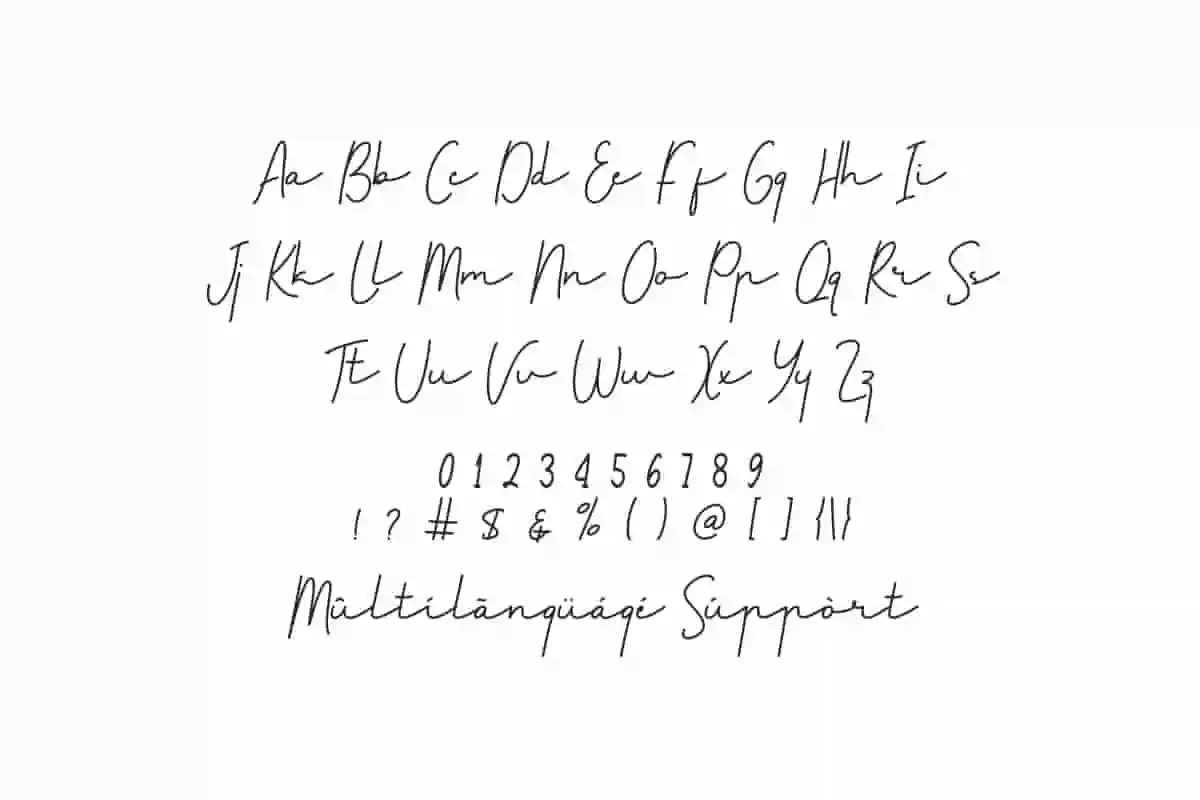 Aa Bb Cc Dd Ee Ff Gg Hh Ii
Jj Kk Ll Mm Nn Oo Pp Qq Rr Ss
Tt Uu Vv Ww Xx Yy Zz
0 1 2 3 4 5 6 7 8 9
! ? # $ & % ( ) @ [ ] {|\}
Mûltílãngüágé Súppòrt